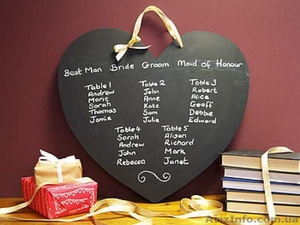 Best Man Bride Groom Maid of Honour
Table 1
Andrew
Sarah
Thomas
Jamie
Table 2
John
Anne
Kate
Sam
Julie
Table 3
Robert
Alice
Geoff
Debbie
Edward
Table 4
Sarah
Andrew
John
Rebecca
Table 5
Alison
Richard
Mark
Janet
AvizInfo.com.ua